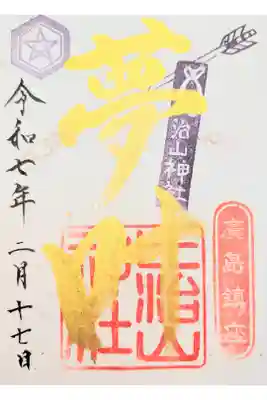 夢叶
治山神社
廣島鎮座
比治山
神社
令和七年 二月十七日